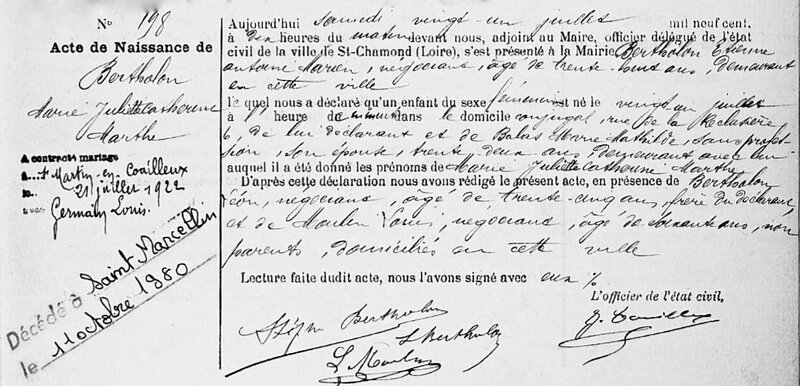 N° 198
Acte de Naissance de
Bertholon
Marie Juliette Catherine
Marthe
A contracté mariage
à St Martin-en-Coailleux
le 21 juillet 1922
avec Germain Louis.
Décédé à Saint Marcellin
le 11 octobre 1980
Aujourd'hui samedi vingt un juillet mil neuf cent,
à dix heures du matin devant nous, adjoint au Maire, officier délégué de l'état
civil de la ville de St-Chamond (Loire), s'est présenté à la Mairie Bertholon Etienne
antoine Marien, negociant, âgé de trente ans, demeurant
en cette ville
lequel nous a déclaré qu'un enfant du sexe féminin est né le vingt un juillet
à l'heure de dans le domicile conjugal, rue de la
6, de lui déclarant et de Balas Marie Mathilde, sans profes-
sion, son épouse, trente-deux ans, demeurant avec lui
auquel il a été donné les prénoms de Marie Juliette Catherine Marthe
D'après cette déclaration nous avons rédigé le présent acte, en présence de Bertholon
Léon, negociant, âgé de trente-cinq ans, frère du déclarant,
et de Moulin Louis, négociant, âgé de soixante ans, non
parents, domiciliés en cette ville
Lecture faite dudit acte, nous l'avons signé avec eux
L'officier de l'état civil,
Bertholon
L Bertholon
L Moulin